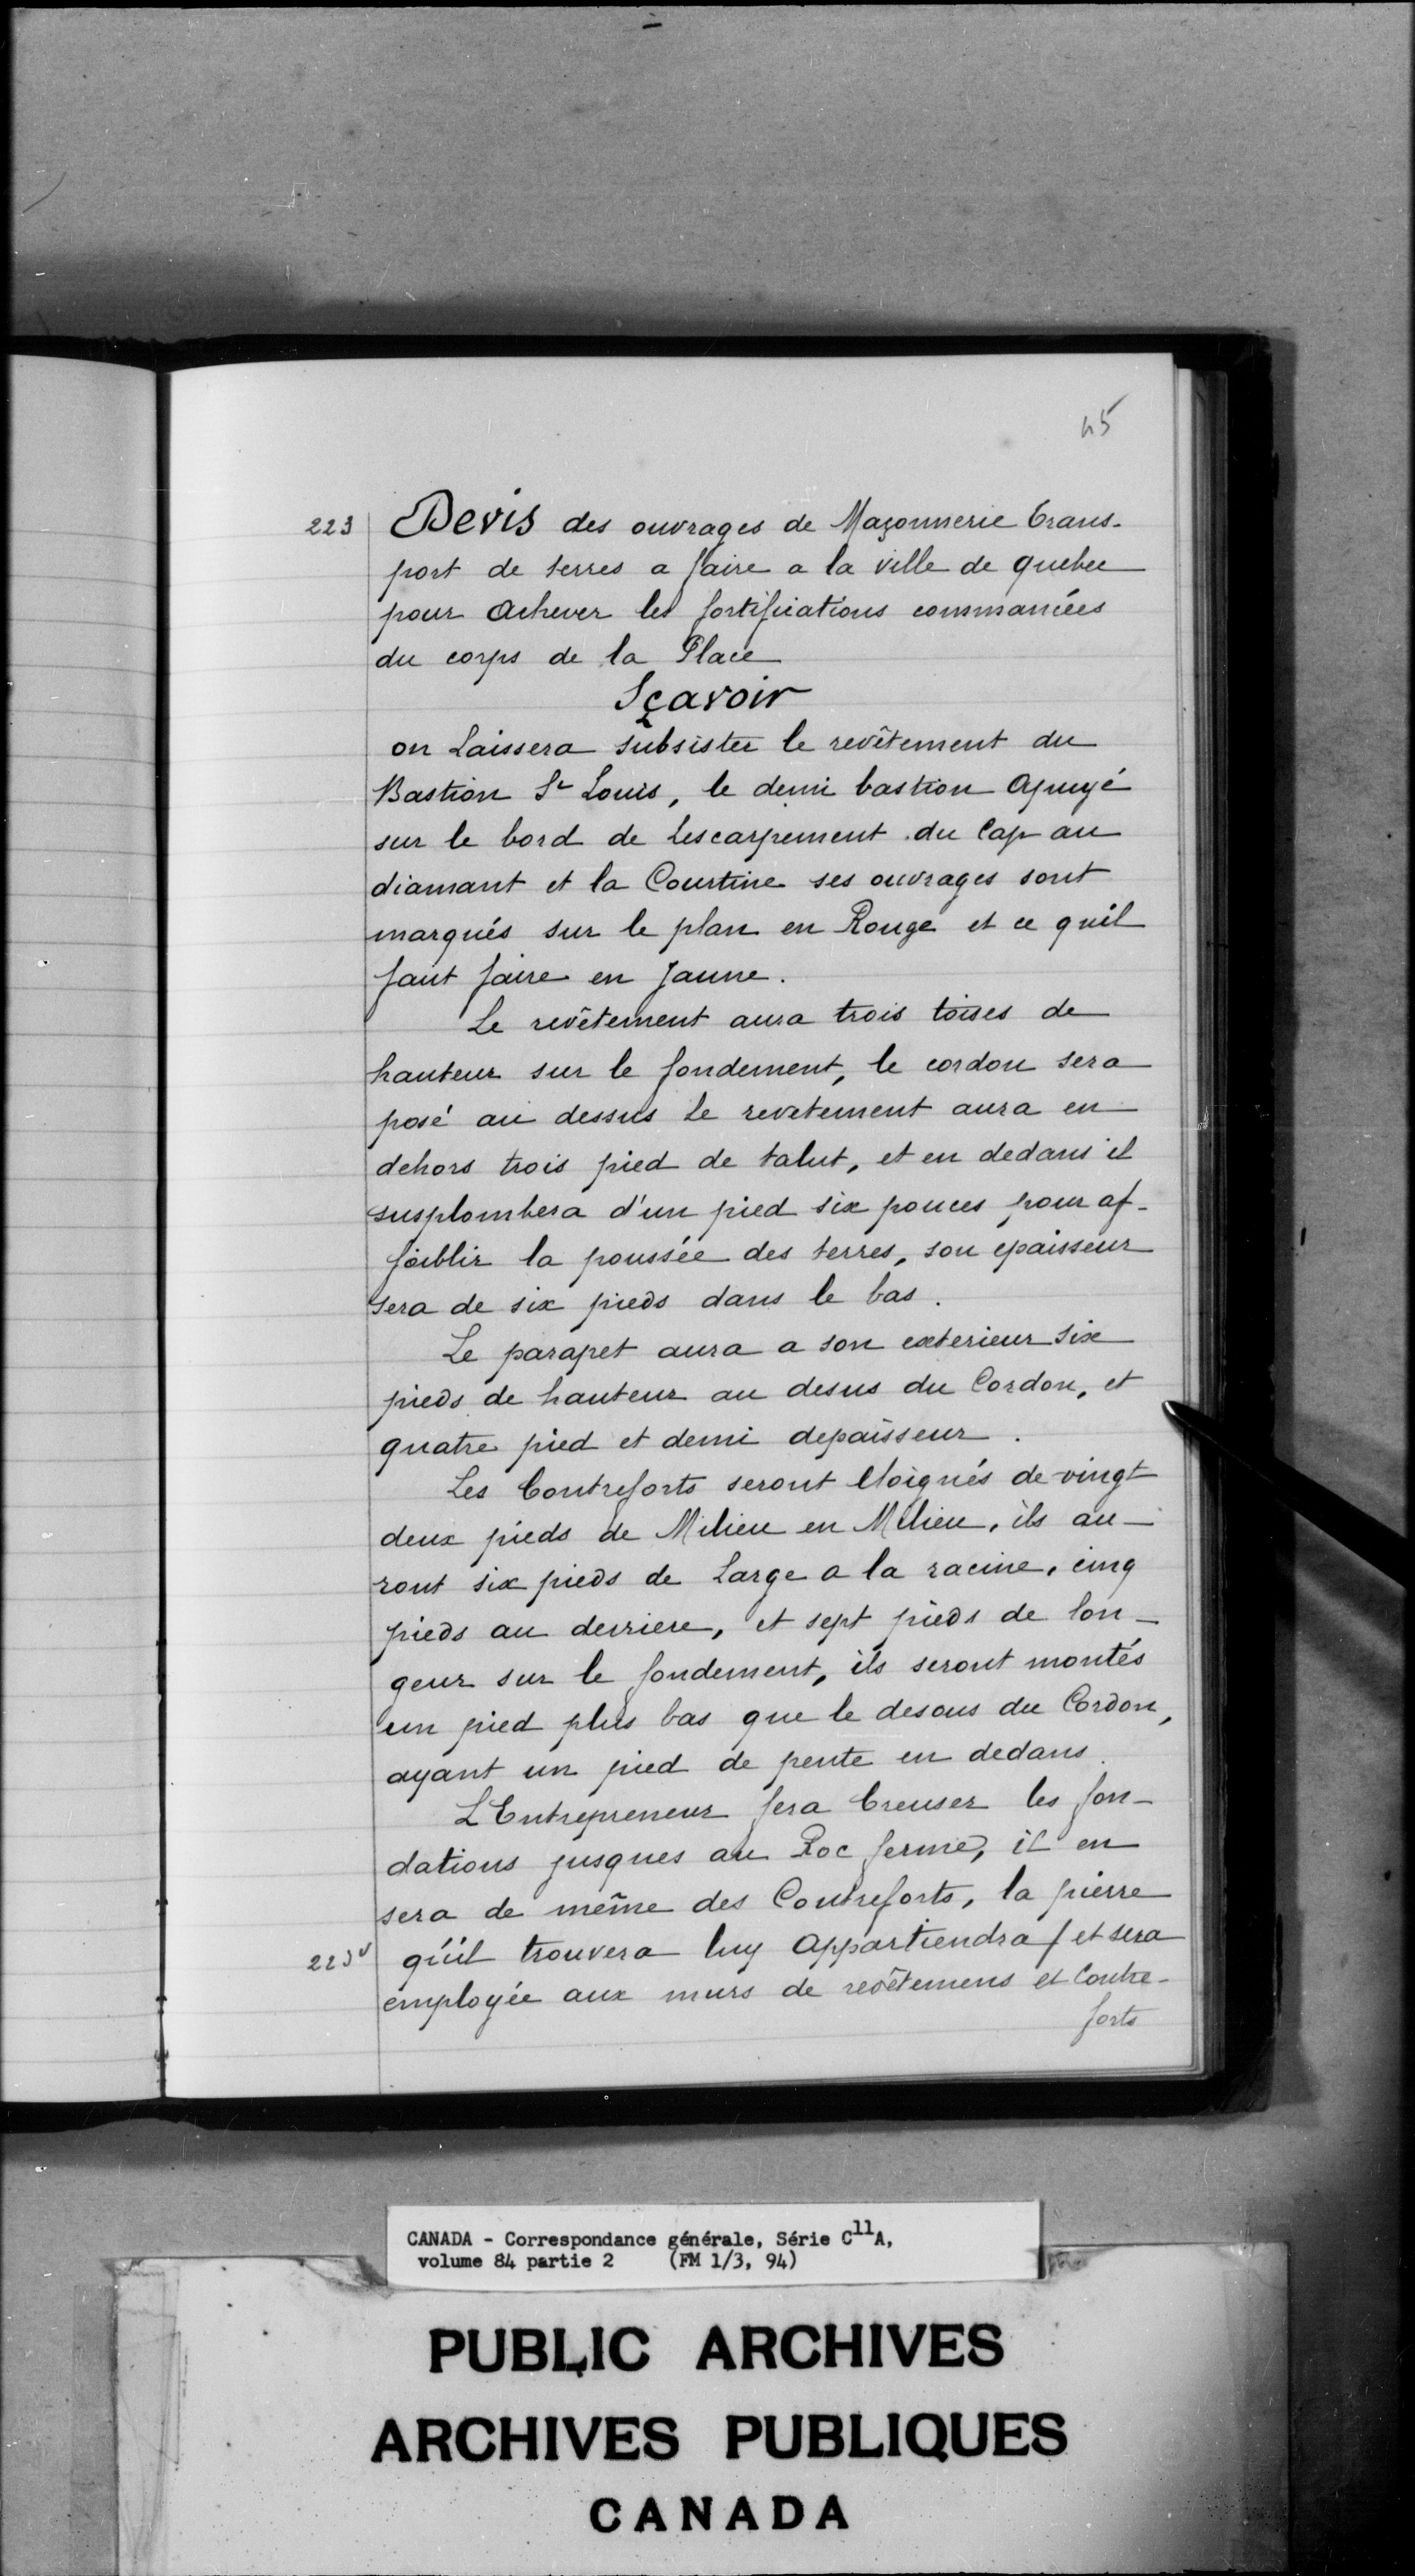 45
223 Devis des ouvrages de Maçonnerie trans-
port de terres a faire a la ville de quebec
pour achever les fortifications commancées
du corps de la Place
Sçavoir
on Laissera subsister le revêtement du
Bastion St Louis, le demi bastion apuyé
sur le bord de Lescarpement du Cap au
diamant et la Courtine ses ouvrages sont
marqués sur le plan en Rouge et ce quil
faut faire en Jaune.
Le revêtement aura trois toises de
hauteur sur le fondement, le cordon sera
posé au dessus le revetement aura en
dehors trois pied de talut, et en dedans il
susplombera d'un pied six pouces pour af-
foiblir la poussée des terres, son epaisseur
sera de six pieds dans le bas.
Le parapet aura a son exterieur six
pieds de hauteur au desus du Cordon, et
quatre pied et demi depaisseur.
Les Contreforts seront Eloignés de vingt
deux pieds de Milieu en Milieu, ils au-
ront six pieds de Large a la racine, cinq
pieds au derriere, et sept pieds de lon-
geur sur le fondement, ils seront montés
un pied plus bas que le desous du Cordon,
ayant un pied de pente en dedans.
L'Entrepreneur fera Creuser les fon-
dations jusques au Roc ferme, il en
sera de même des Contreforts, la pierre
223v qu'il trouvera luy appartiendra / et sera
employée aux murs de revêtemens et Contre-
forts
CANADA - Correspondance générale, Série C11A,
volume 84 partie 2 (FM 1/3, 94)
PUBLIC ARCHIVES
ARCHIVES PUBLIQUES
CANADA